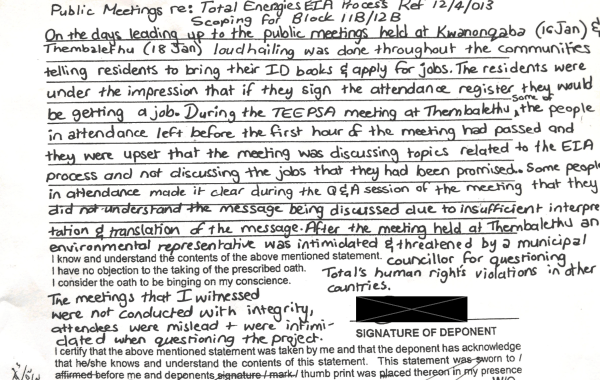 Public Meetings re: Total Energies EIA Process Ref 12/4/013
Scoping for Block 11B/12B
On the days leading up to the public meetings held at Kwanonqaba (16 Jan) &
Thembalethu (18 Jan) loudhailing was done throughout the communities
telling residents to bring their ID books & apply for jobs. The residents were
under the impression that if they sign the attendance register they would
be getting a job. During the TEEPSA meeting at Thembalethu, some of the people
in attendance left before the first hour of the meeting had passed and
they were upset that the meeting was discussing topics related to the EIA
process and not discussing the jobs that they had been promised. Some people
in attendance made it clear during the Q&A session of the meeting that they
did not understand the message being discussed due to insufficient interpre
tation & translation of the message. After the meeting held at Thembalethu an
environmental representative was intimidated & threatened by a municipal
councillor for questioning
Total's human rights violations in other
countries.
I know and understand the contents of the above mentioned statement.
I have no objection to the taking of the prescribed oath.
I consider the oath to be binging on my conscience.
The meetings that I witnessed
were not conducted with integrity,
attendees were mislead + were intimi-
dated when questioning the project.
SIGNATURE OF DEPONENT
I certify that the above mentioned statement was taken by me and that the deponent has acknowledge
that he/she knows and understand the contents of this statement. This statement was sworn to /
affirmed before me and deponents signature / mark / thumb print was placed thereon in my presence